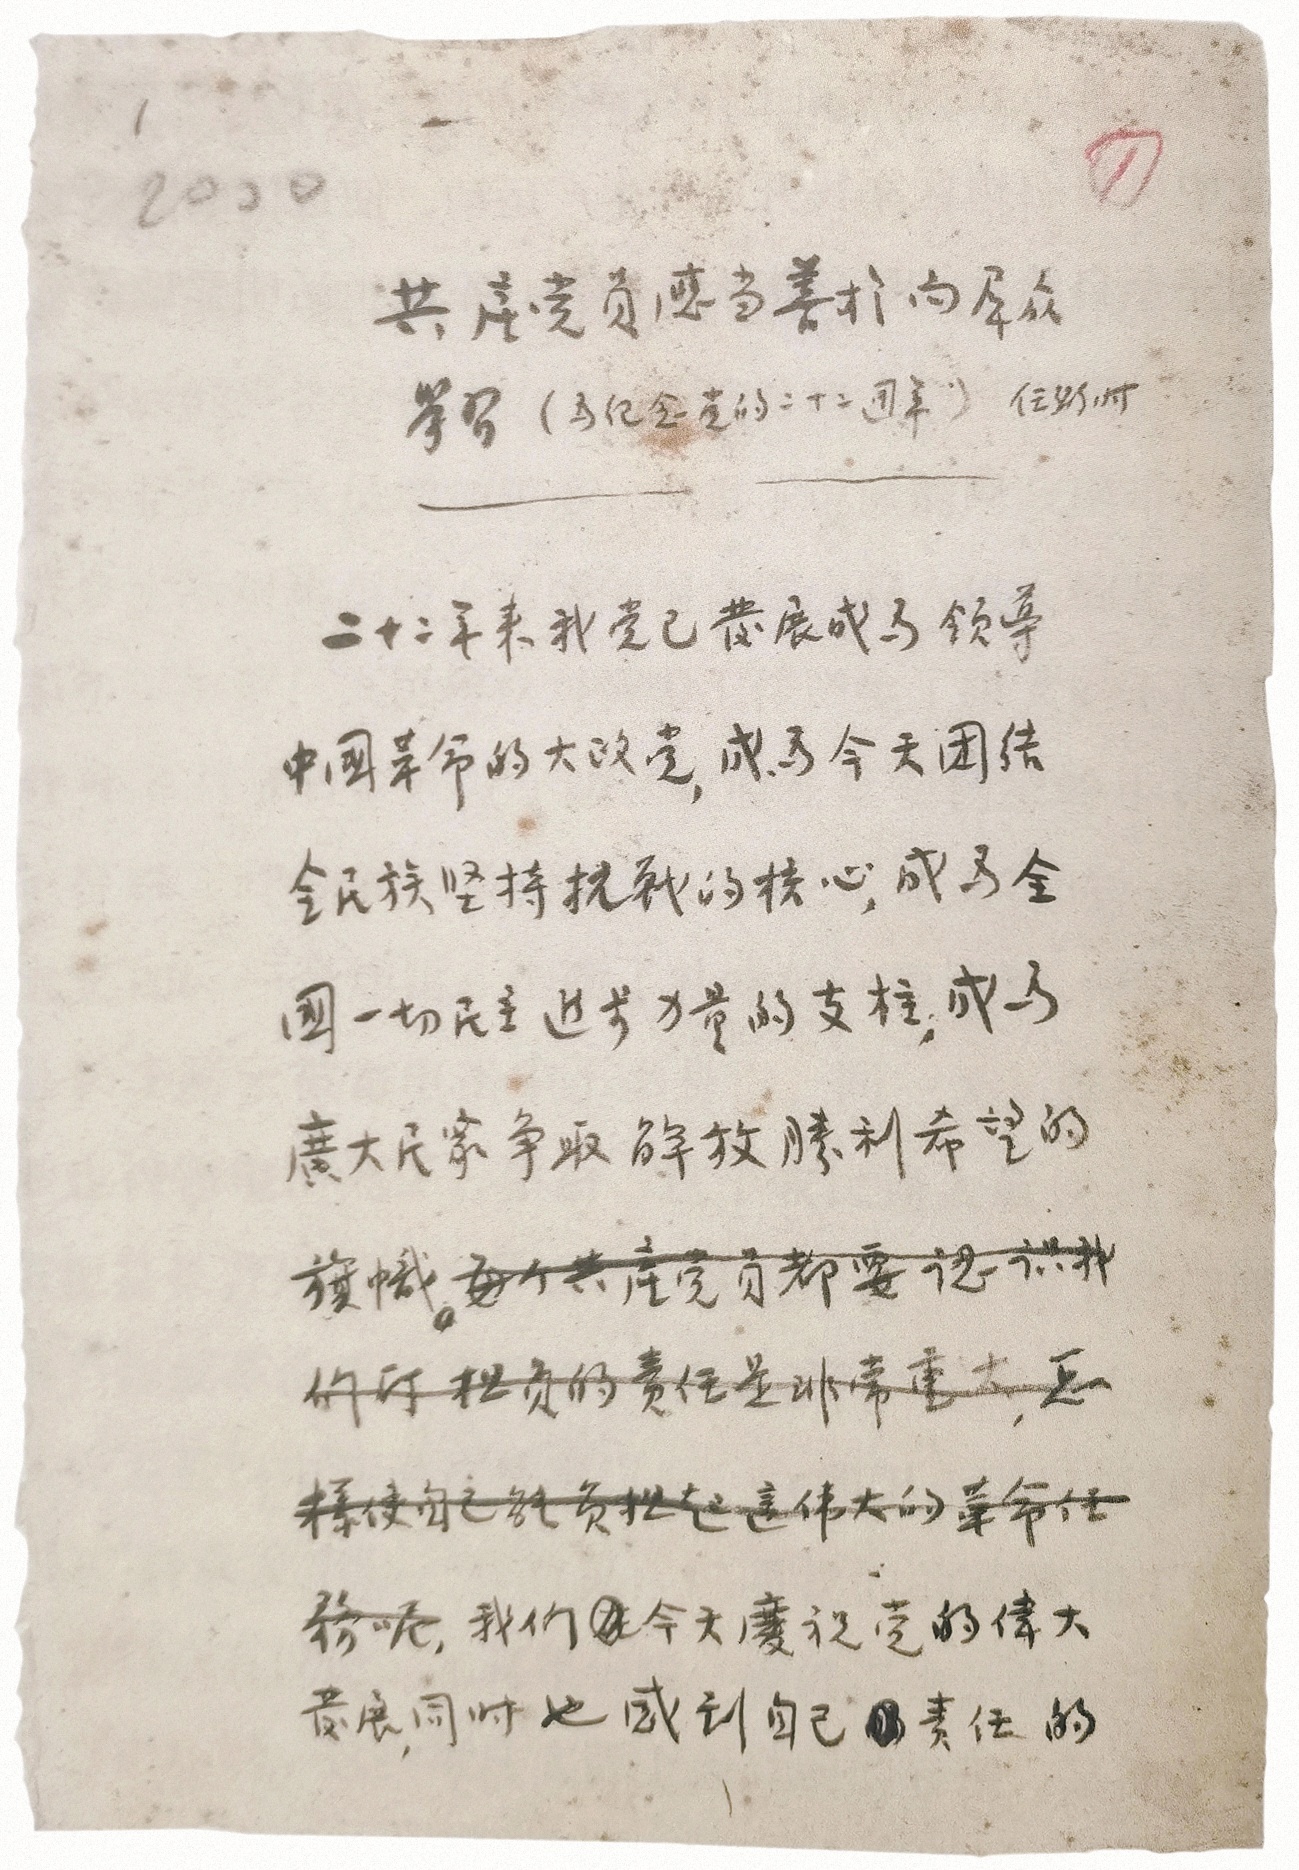 1
2000
①
共産党员應当善於向群众
学習（为纪念党的二十二週年）任弼时
二十二年来我党已發展成为领导
中國革命的大政党，成为今天团结
全民族坚持抗戰的核心，成为全
國一切民主進步力量的支柱，成为
廣大民衆争取解放勝利希望的
旗幟。每个共産党员都要认识我
们所担负的责任是非常重大，怎
样使自己能负担起这伟大的革命任
務呢，我们在今天慶祝党的偉大
發展，同时也感到自己责任的